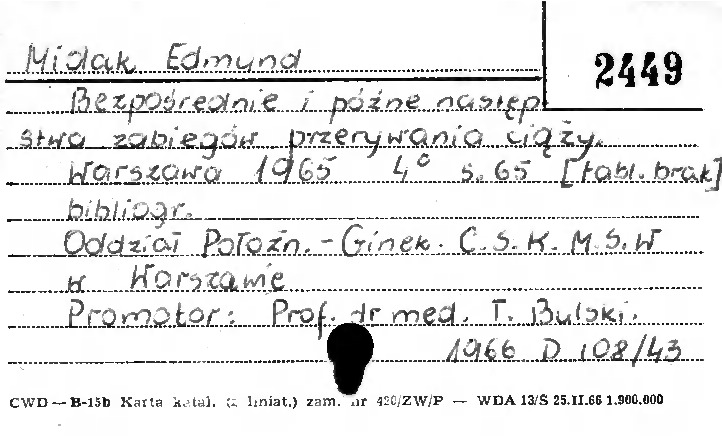 Midak Edmund
2449
Bezpośrednie i późne następ
stwa zabiegów przerywania ciąży.
Warszawa 1965 4° s. 65 [tabl. brak]
bibliogr.
Oddział Położn. - Ginek. C. S. K. M. S. W
w Warszawie
Promotor: Prof. dr med. T. Bulski.
1966 D 108/43
CWD — B-15b Karta katal. (z liniat.) zam. nr 420/ZW/P — WDA 13/S 25.II.66 1.900.000